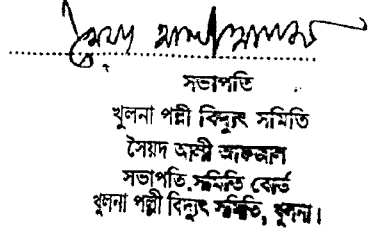 সভাপতি
খুলনা পল্লী বিদ্যুৎ সমিতি
সৈয়দ আলী
সভাপতি, সমিতি বোর্ড
খুলনা পল্লী বিদ্যুৎ সমিতি, খুলনা।